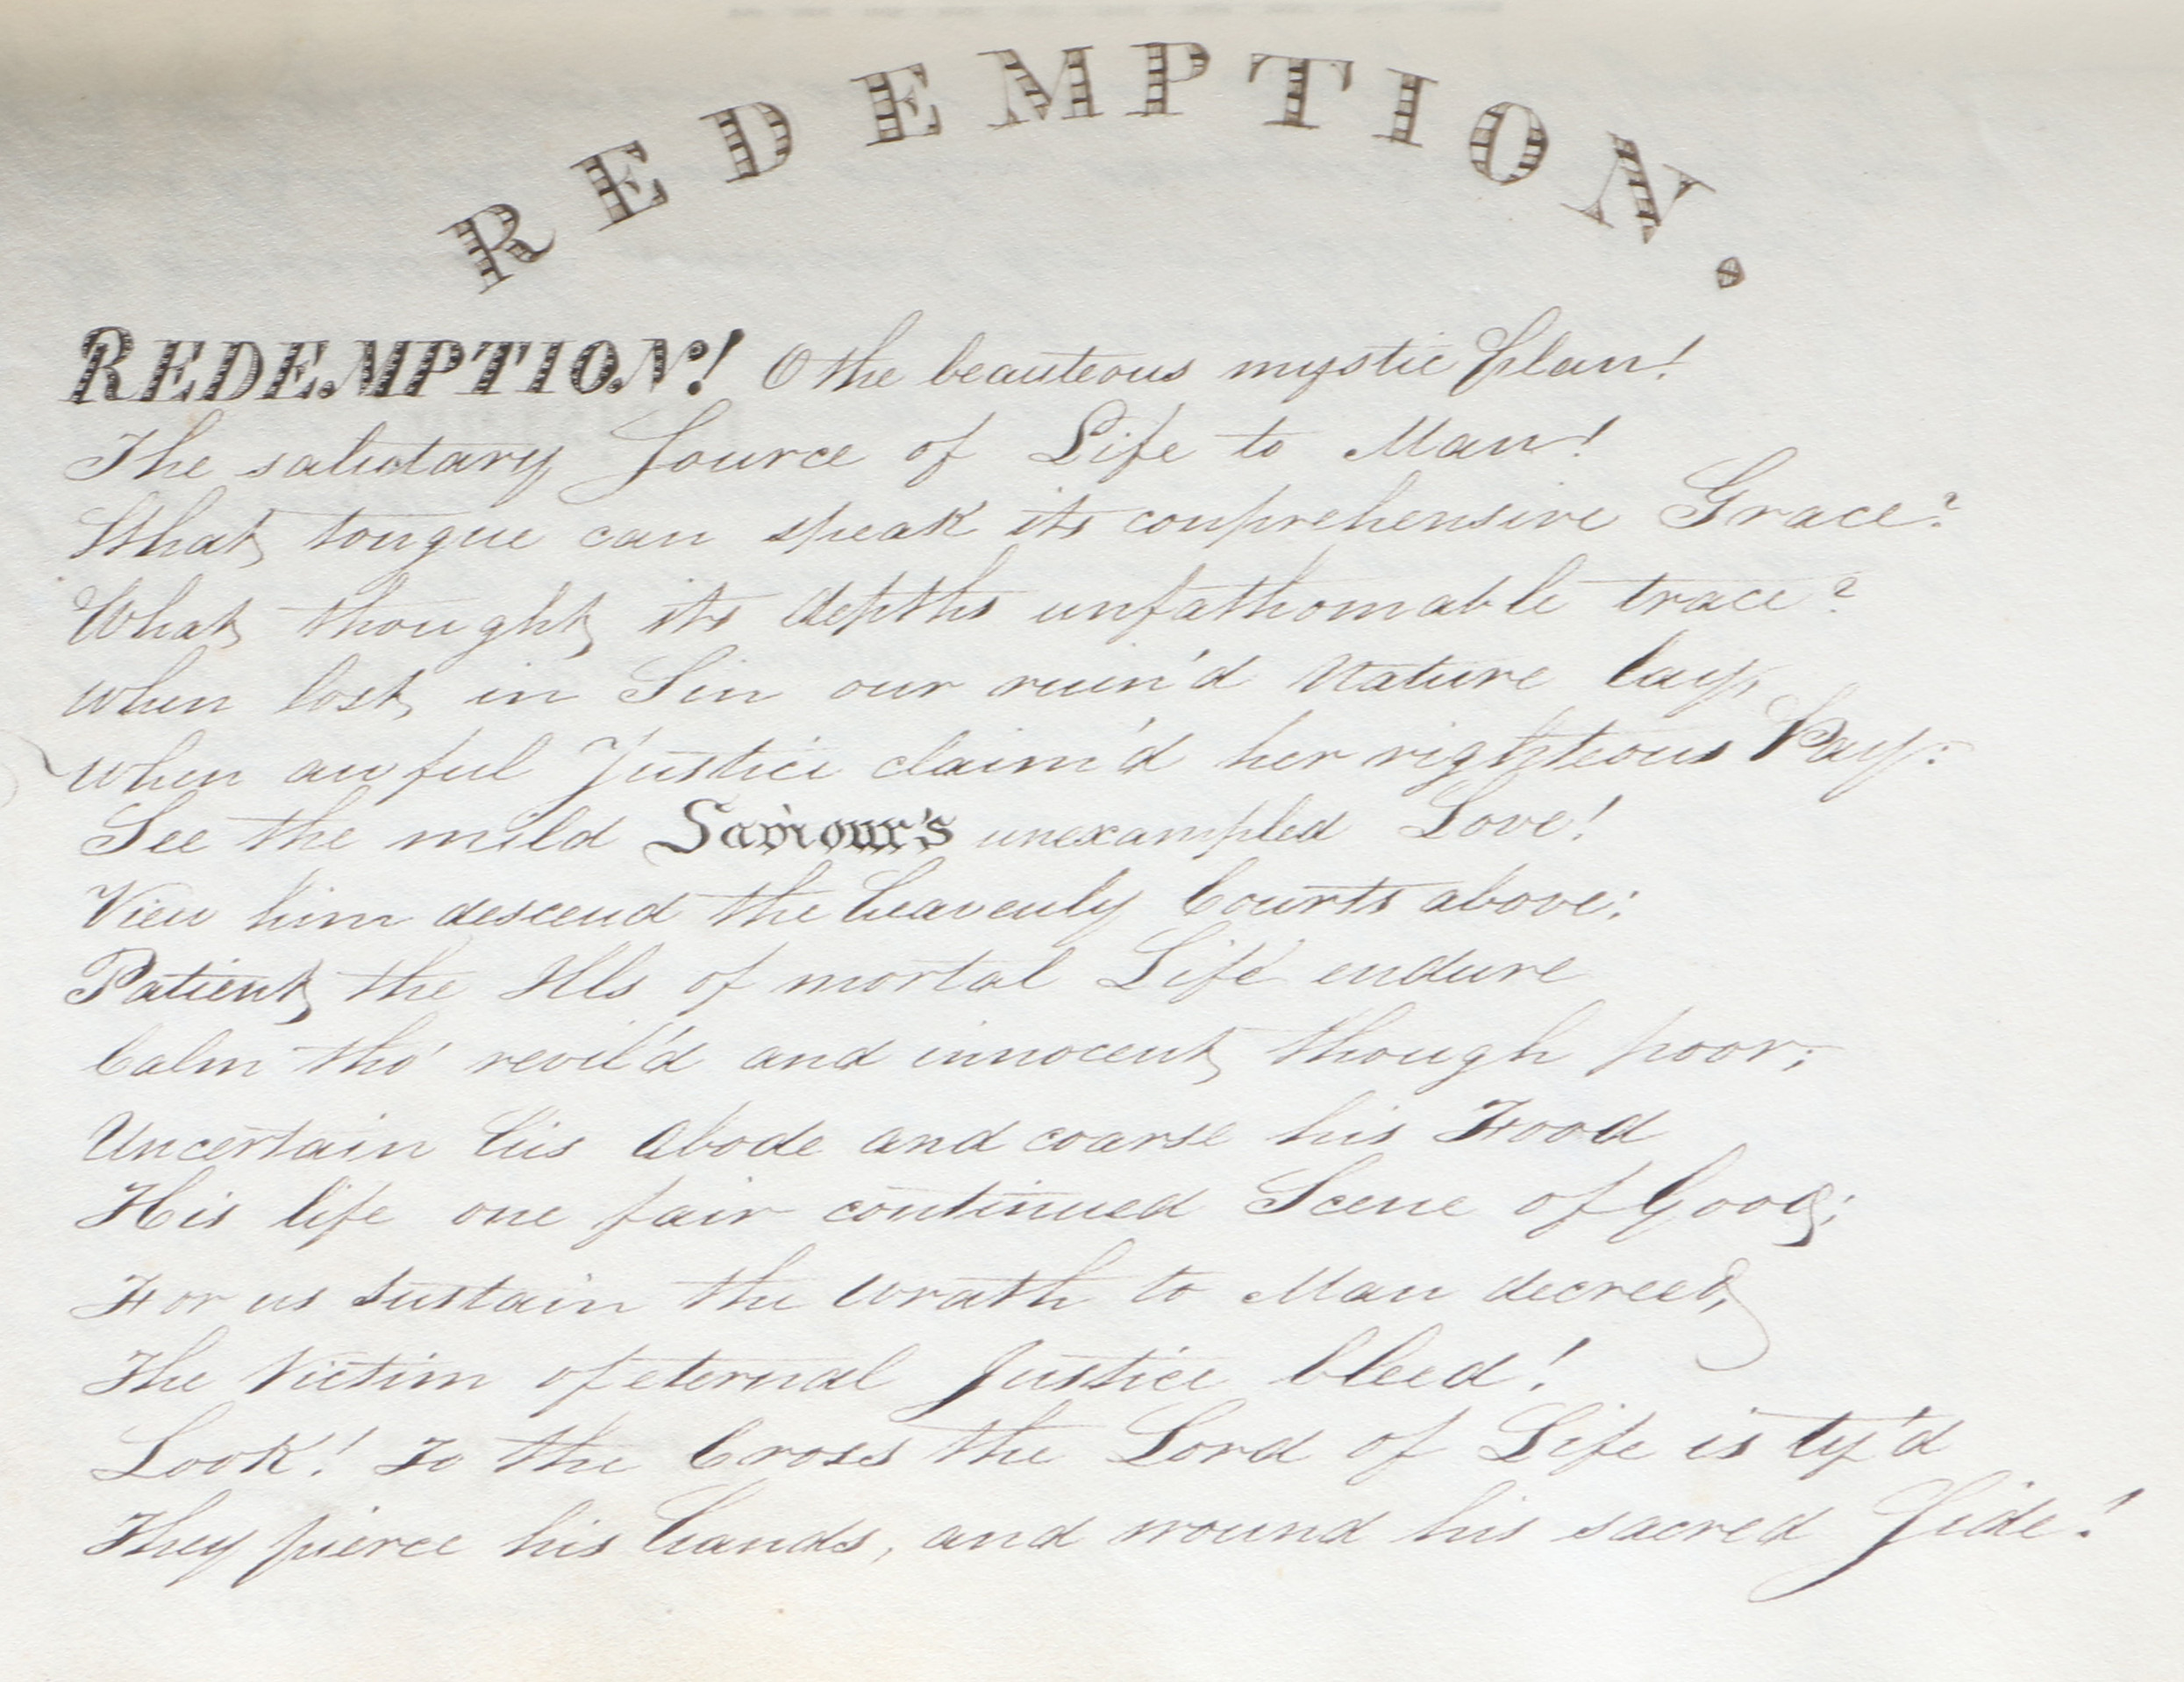 REDEMPTION.
REDEMPTION! O the beauteous mystic Plan!
The salutary Source of Life to Man!
What tongue can speak its comprehensive Grace?
What thought its depths unfathomable trace?
When lost in Sin our ruin'd Nature lay,
When awful Justice claim'd her righteous Pay:
See the mild Saviour's unexampled Love!
View him descend the heavenly Courts above;
Patient the Ills of mortal Life endure
Calm tho' revil'd and innocent though poor;
Uncertain his Abode and coarse his Food
His life one fair continued Scene of Good;
For us sustain the wrath to Man decreed,
The Victim of eternal Justice bleed!
Look! To the Cross the Lord of Life is ty'd
They pierce his hands, and wound his sacred Side!